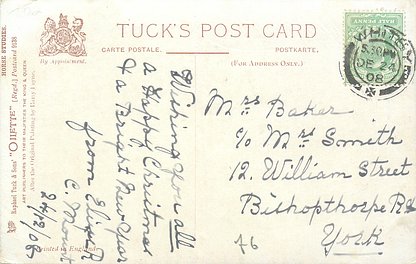 TUCK'S POST CARD
CARTE POSTALE.
POSTKARTE.
By Appointment.
(FOR ADDRESS ONLY.)
HORSE STUDIES.
Raphael Tuck & Sons' "OILETTE" [Regd.] Postcard 9138
ART PUBLISHERS TO THEIR MAJESTIES THE KING & QUEEN.
After the Original Painting by Harry
Printed in England.
HALF PENNY
WHITBY
5.30PM
DE 24
08
Wishing you all
a Happy Christmas
& a Bright New Year
from
C. Mount
24/12/08
Mrs Baker
c/o Mrs Smith
12. William Street
Bishopthorpe Rd
York